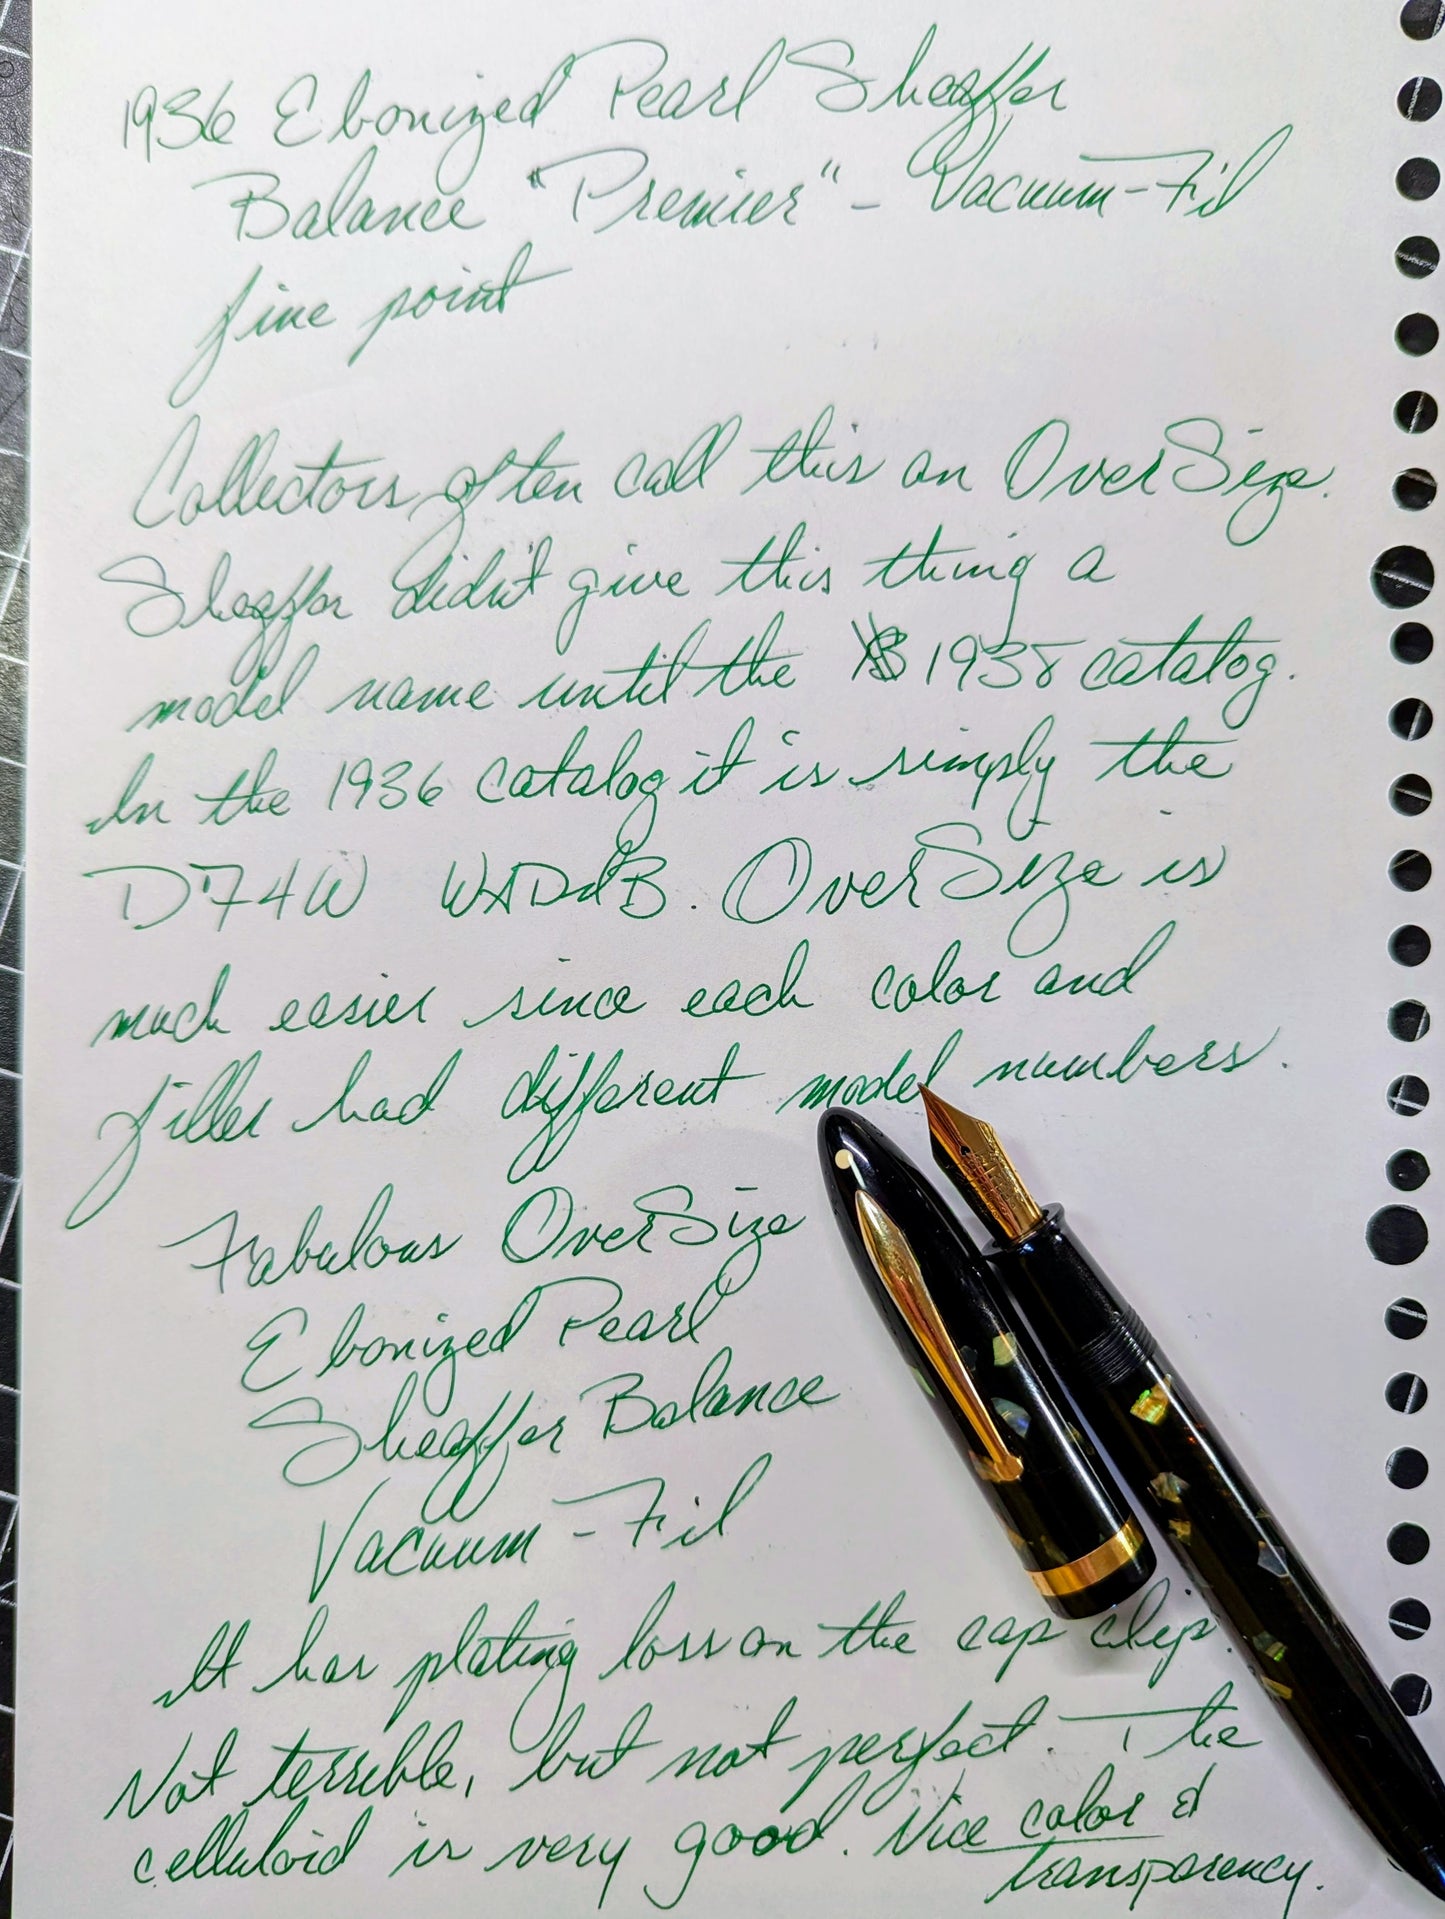 1936 Ebonized Pearl Sheaffer
Balance "Premier" - Vacuum-Fil
fine point
Collectors often call this an OverSize.
Sheaffer didn't give this thing a
model name until the 1938 catalog.
In the 1936 catalog it is simply the
D74W WADdB. OverSize is
much easier since each color and
filler had different model numbers.
Fabulous OverSize
Ebonized Pearl
Sheaffer Balance
Vacuum-Fil
It has plating loss on the cap clip.
Not terrible, but not perfect. The
celluloid is very good. Nice color &
transparency.